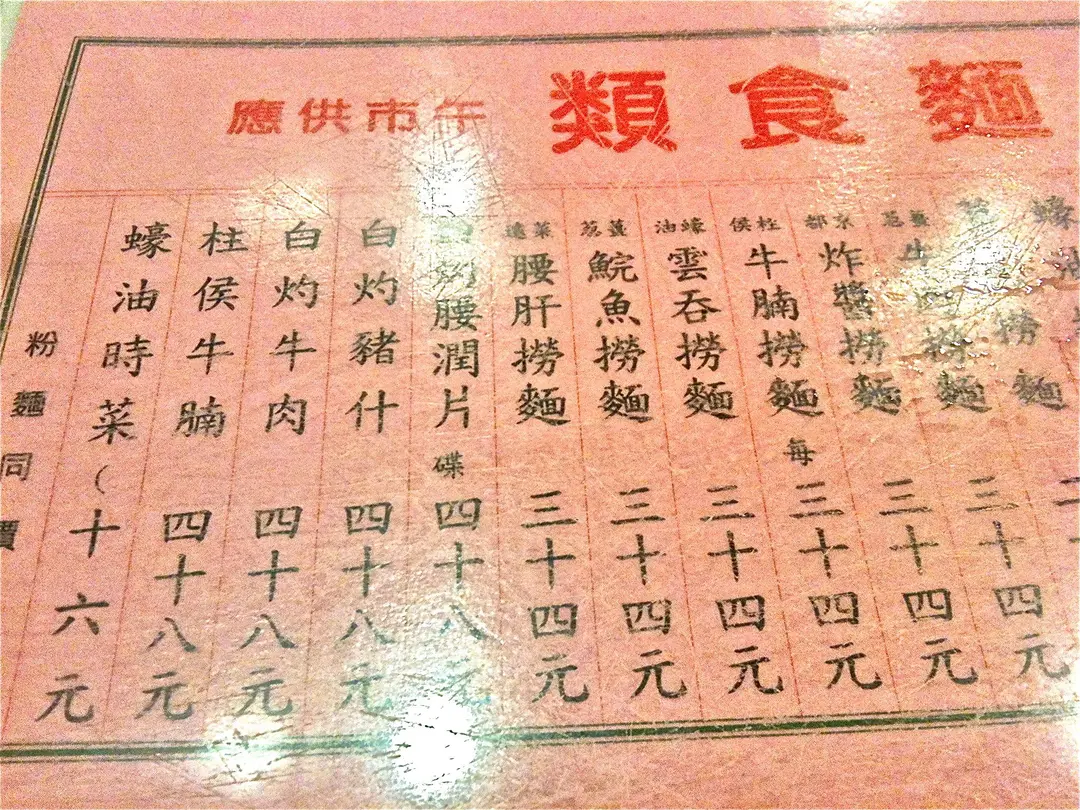 麵食類 午市供應
蠔油
撈麵
薑荵牛撈麵 三十四元
京都炸醬撈麵 三十四元
柱侯牛腩撈麵 每 三十四元
蠔油雲吞撈麵 三十四元
薑荵鯇魚撈麵 三十四元
菜遠腰肝撈麵 三十四元
灼腰潤片 碟 四十八元
白灼豬什 四十八元
白灼牛肉 四十八元
柱侯牛腩 四十八元
蠔油時菜 ( 十六元
粉麵同價